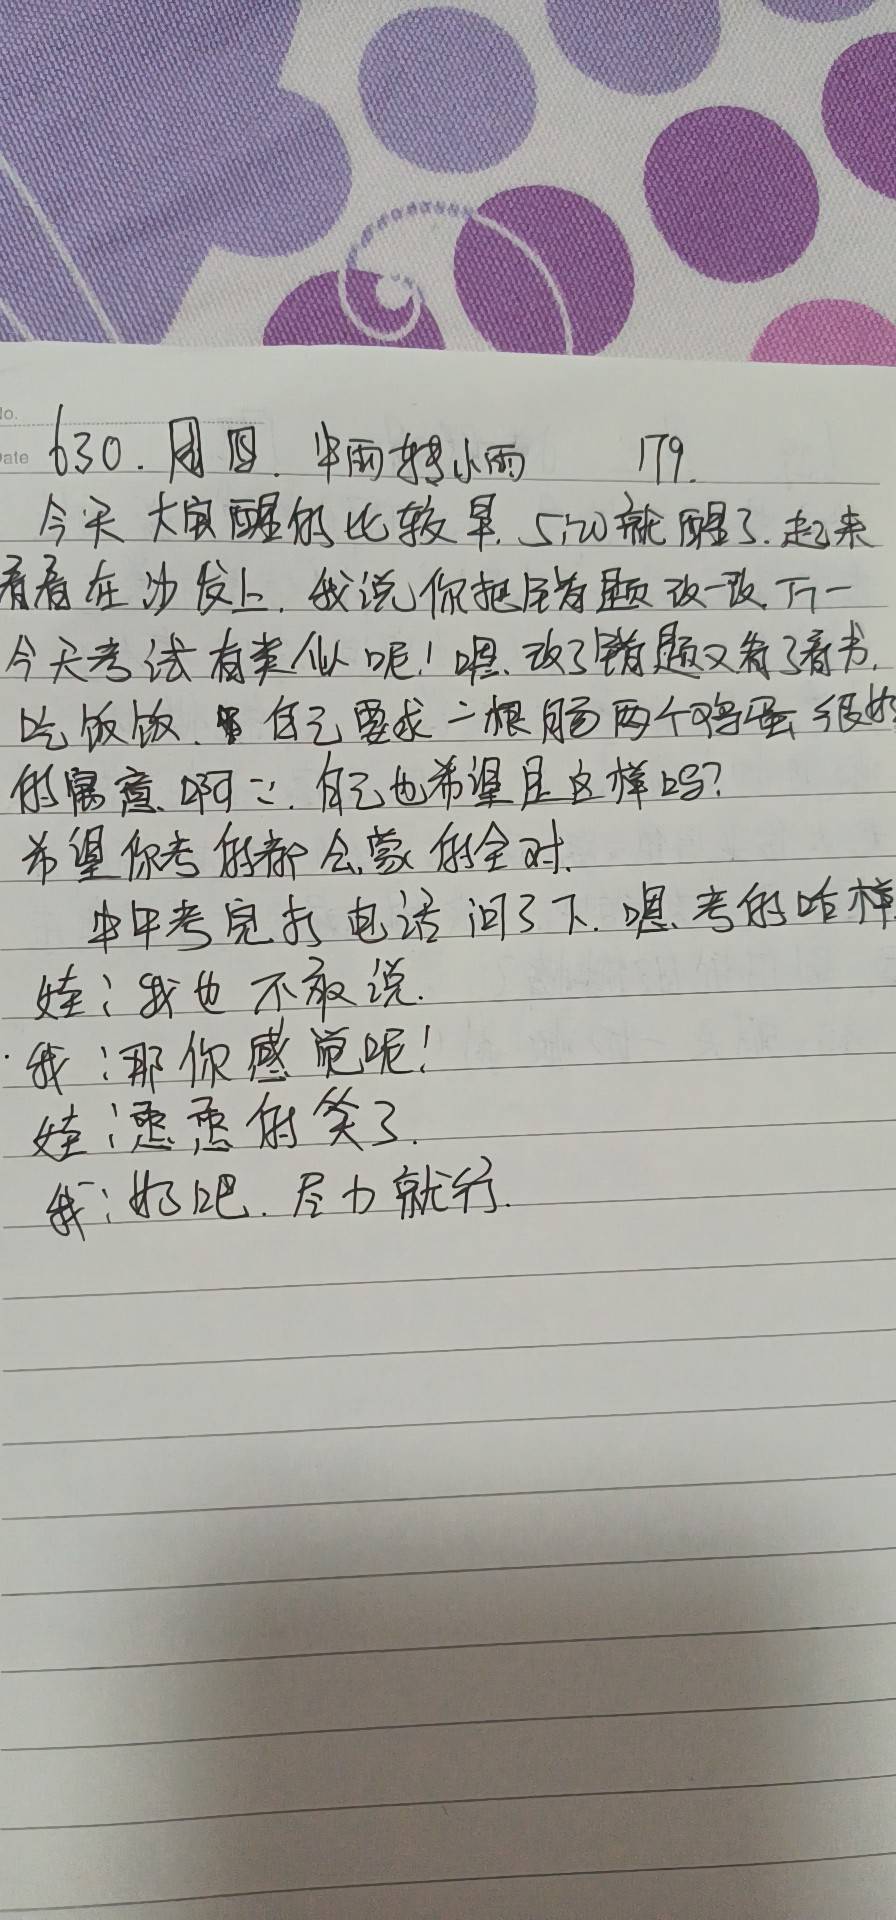 No.
Date 630. 周四. 中雨转小雨 179.
今天大宝醒的比较早, 5:20就醒了. 起来
看看在沙发上. 我说你把错题改一改. 万一
今天考试有类似呢! 嗯. 改了错题又看了看书.
吃饭饭. 自己要求一根肠两个鸡蛋 很好
的寓意. 啊:. 自己也希望是这样吗?
希望你考的都会, 蒙的全对.
中午考完打电话问了下. 嗯. 考的咋样
娃: 我也不敢说.
我: 那你感觉呢!
娃: 的笑了.
我: 好吧. 尽力就行.